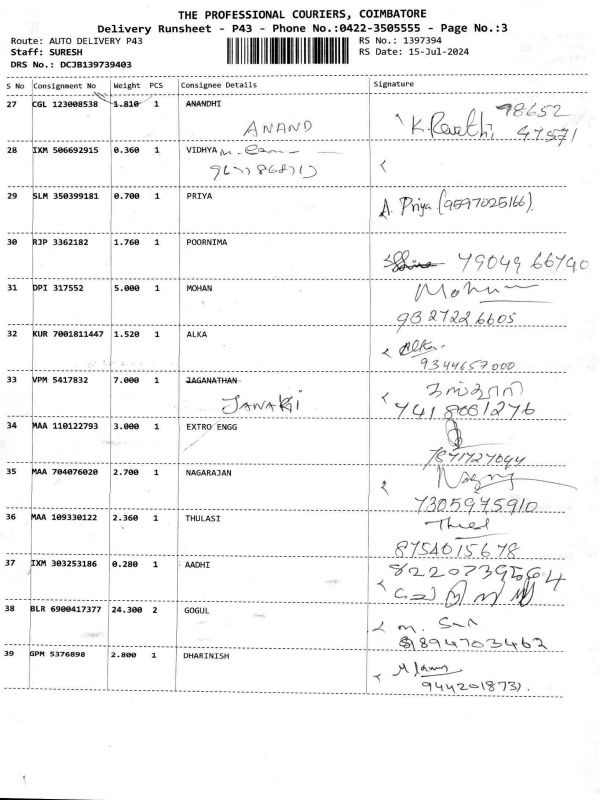 THE PROFESSIONAL COURIERS, COIMBATORE
Delivery Runsheet - P43 - Phone No.:0422-3505555 - Page No.:3
Route: AUTO DELIVERY P43 RS No.: 1397394
Staff: SURESH RS Date: 15-Jul-2024
DRS No.: DCJB139739403
S No Consignment No Weight PCS Consignee Details Signature
27 CGL 123008538 1.810 1 ANANDHI 98652
ANAND K. Revathi 47571
28 IXM 506692915 0.360 1 VIDHYA
29 SLM 350399181 0.700 1 PRIYA A. Priya (9597025166).
30 RJP 3362182 1.760 1 POORNIMA
79049 66740
31 DPI 317552 5.000 1 MOHAN Mohan
9327226605
32 KUR 7001811447 1.520 1 ALKA Alka
9344657000
33 VPM 5417832 7.000 1 JAGANATHAN
JANAKI 7418081276
34 MAA 110122793 3.000 1 EXTRO ENGG
7871727044
35 MAA 704076020 2.700 1 NAGARAJAN
7305975910
36 MAA 109330122 2.360 1 THULASI
8754015678
37 IXM 303253186 0.280 1 AADHI
38 BLR 6900417377 24.300 2 GOGUL
9894703462
39 GPM 5376898 2.800 1 DHARINISH
9442018731.